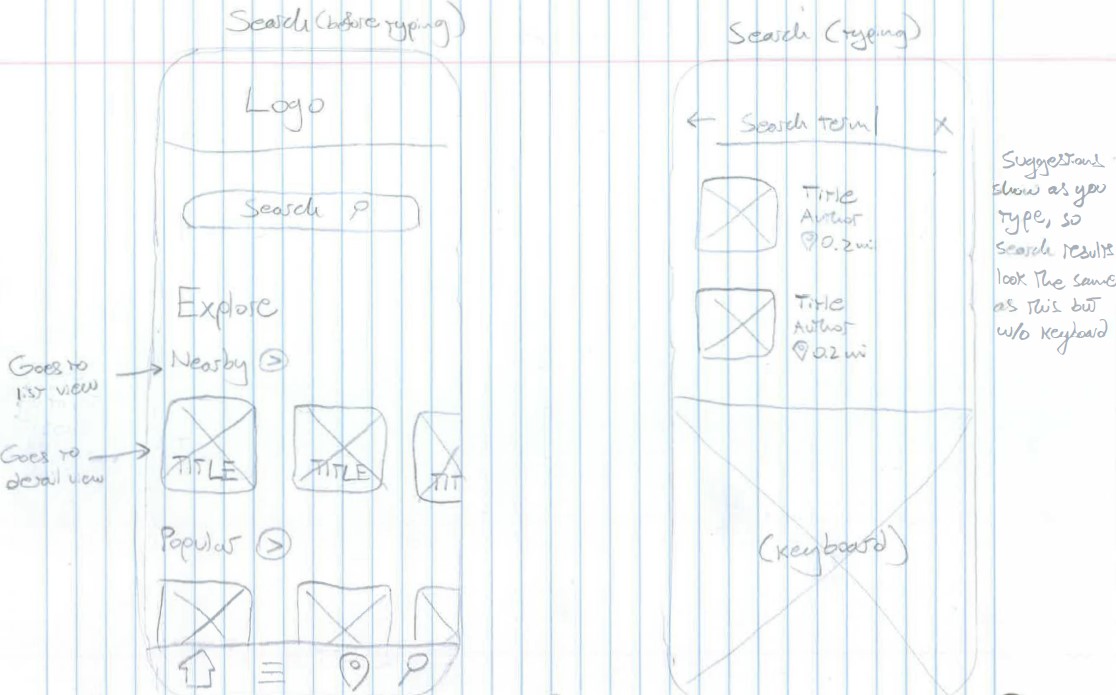 Search (before typing)
Logo
Search
Explore
Goes to
list view
Nearby >
Goes to
detail view
TITLE
TITLE
TIT
Popular >
Search (typing)
← Search term| x
Title
Author
0.2 mi
Title
Author
0.2 mi
(keyboard)
Suggestions
show as you
type, so
search results
look the same
as this but
w/o keyboard